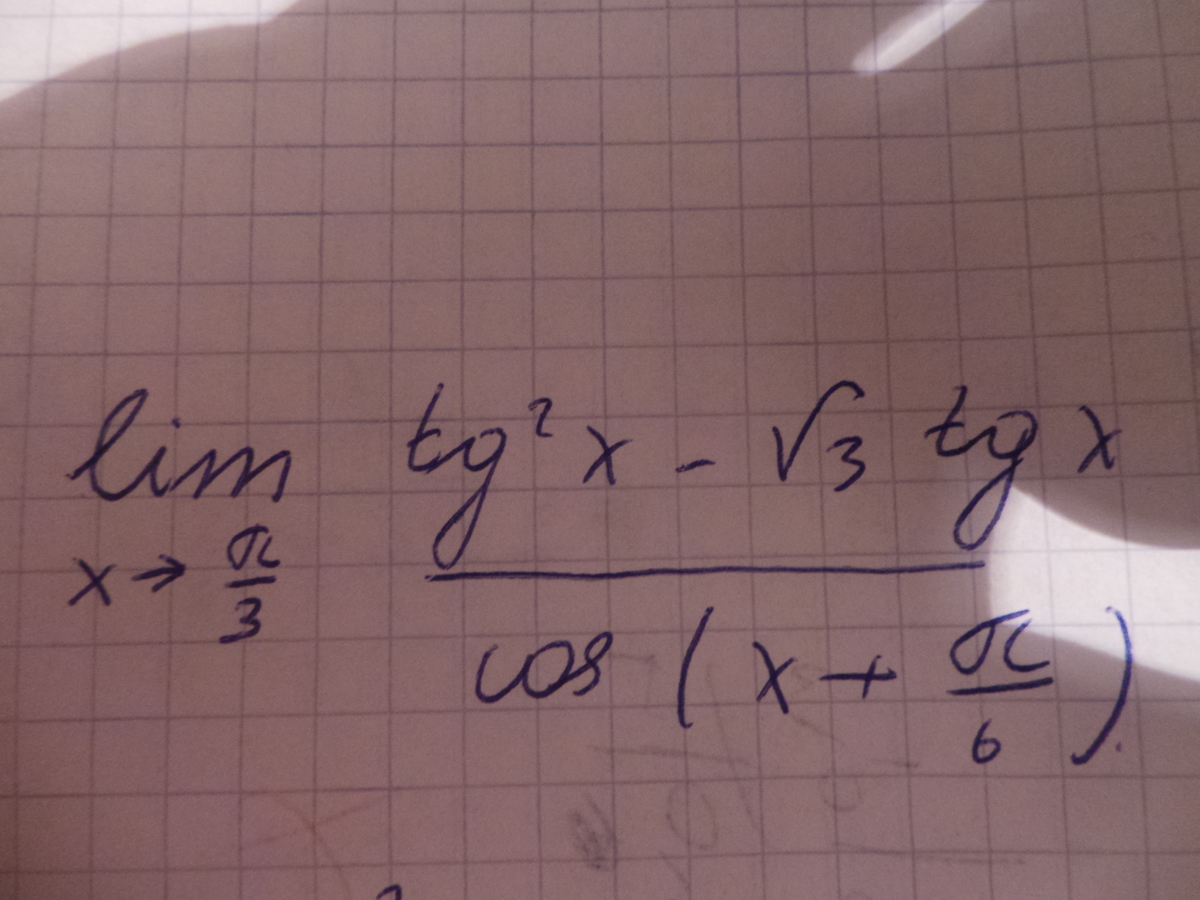 lim x→π/3 (tg²x - √3 tg x) / cos(x + π/6).